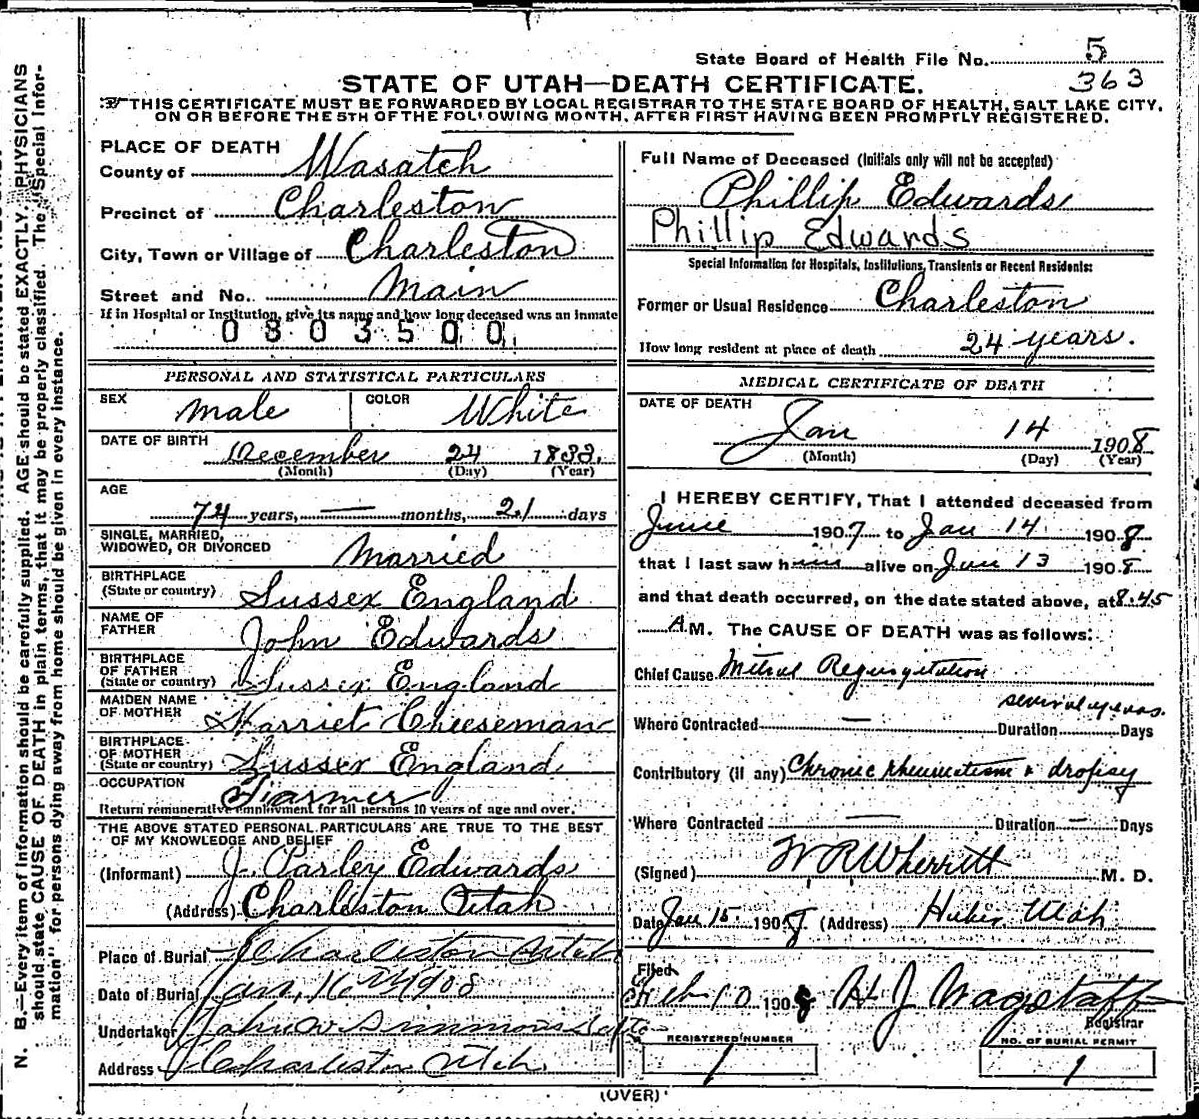 State Board of Health File No. 5
363
STATE OF UTAH—DEATH CERTIFICATE.
THIS CERTIFICATE MUST BE FORWARDED BY LOCAL REGISTRAR TO THE STATE BOARD OF HEALTH, SALT LAKE CITY,
ON OR BEFORE THE 5TH OF THE FOLLOWING MONTH, AFTER FIRST HAVING BEEN PROMPTLY REGISTERED.
N. B.—Every item of information should be carefully supplied. AGE should be stated EXACTLY. PHYSICIANS
should state CAUSE OF DEATH in plain terms, that it may be properly classified. The "Special Infor-
mation" for persons dying away from home should be given in every instance.
PLACE OF DEATH
County of Wasatch
Precinct of Charleston
City, Town or Village of Charleston
Street and No. Main
If in Hospital or Institution, give its name and how long deceased was an inmate
0803500
PERSONAL AND STATISTICAL PARTICULARS
SEX Male COLOR White
DATE OF BIRTH December 24 1833.
(Month) (Day) (Year)
AGE
74 years, — months, 21 days
SINGLE, MARRIED,
WIDOWED, OR DIVORCED Married
BIRTHPLACE
(State or country) Sussex England
NAME OF
FATHER John Edwards
BIRTHPLACE
OF FATHER
(State or country) Sussex England
MAIDEN NAME
OF MOTHER Harriet Cheeseman
BIRTHPLACE
OF MOTHER
(State or country) Sussex England
OCCUPATION Farmer
Return remunerative employment for all persons 10 years of age and over.
THE ABOVE STATED PERSONAL PARTICULARS ARE TRUE TO THE BEST
OF MY KNOWLEDGE AND BELIEF
(Informant) J. Parley Edwards
(Address) Charleston Utah
Place of Burial Charleston Utah
Date of Burial Jan, 16 1908
Undertaker John W Simmons
Address Charleston Utah
Full Name of Deceased (Initials only will not be accepted)
Phillip Edwards
Phillip Edwards
Special Information for Hospitals, Institutions, Transients or Recent Residents:
Former or Usual Residence Charleston
How long resident at place of death 24 years.
MEDICAL CERTIFICATE OF DEATH
DATE OF DEATH
Jan 14 1908
(Month) (Day) (Year)
I HEREBY CERTIFY, That I attended deceased from
June 1907 to Jan 14 1908
that I last saw him alive on Jan 13 1908
and that death occurred, on the date stated above, at 8.45
A.M. The CAUSE OF DEATH was as follows:
Chief Cause Mitral Regurgitation
several years.
Where Contracted — Duration Days
Contributory (if any) Chronic rheumatism & dropsy
Where Contracted — Duration — Days
(Signed) W R Wherritt M. D.
Date Jan 15. 1908 (Address) Heber, Utah
Filed
Feb 10 1908 H J Wagstaff
Registrar
REGISTERED NUMBER
1
NO. OF BURIAL PERMIT
1
(OVER)